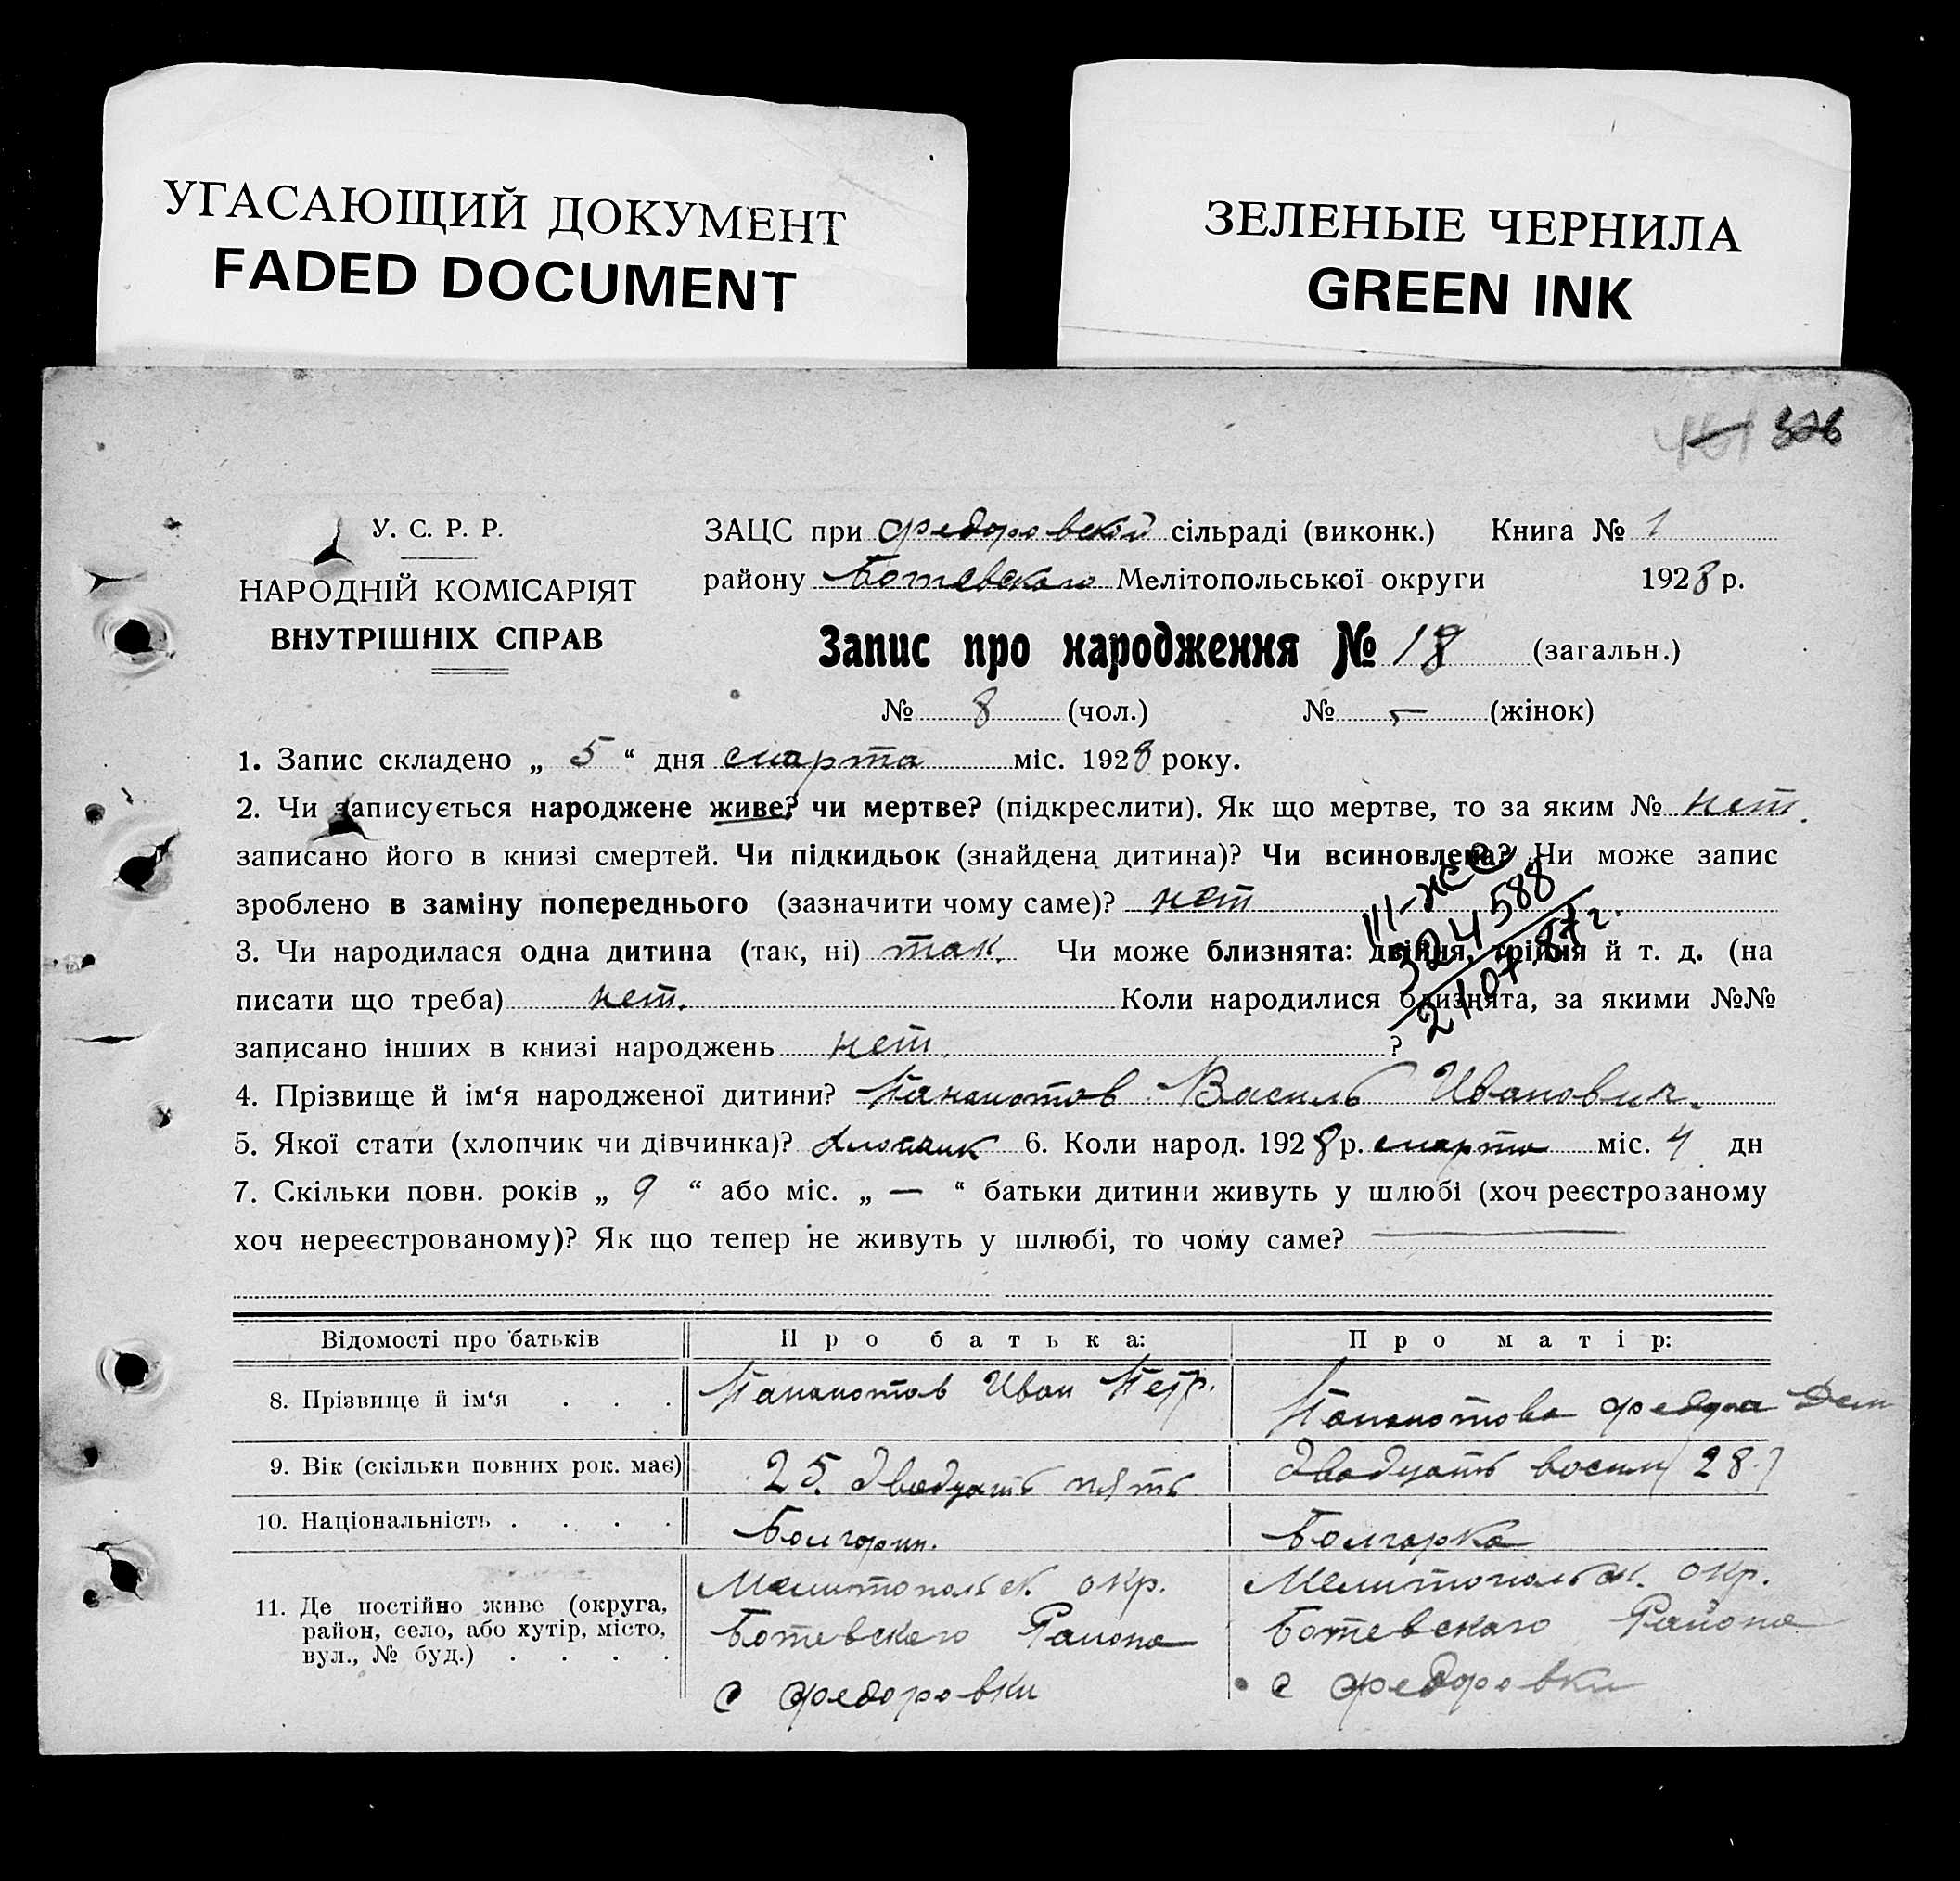 УГАСАЮЩИЙ ДОКУМЕНТ
FADED DOCUMENT
ЗЕЛЕНЫЕ ЧЕРНИЛА
GREEN INK
326
У. С. Р. Р.
НАРОДНІЙ КОМІСАРІЯТ
ВНУТРІШНІХ СПРАВ
ЗАЦС при Федоровской сільраді (виконк.) Книга № 1
району Ботевского Мелітопольської округи 1928 р.
Запис про народження № 18 (загальн.)
№ 8 (чол.) № – (жінок)
1. Запис складено „ 5 “ дня марта міс. 1928 року.
2. Чи записується народжене живе? чи мертве? (підкреслити). Як що мертве, то за яким № нет.
записано його в книзі смертей. Чи підкидьок (знайдена дитина)? Чи всиновлена? Чи може запис
зроблено в заміну попереднього (зазначити чому саме)? нет
III-ЖС
324588
3. Чи народилася одна дитина (так, ні) так. Чи може близнята: двійня, трійня й т. д. (на
писати що треба) нет. Коли народилися близнята, за якими №№
записано інших в книзі народжень нет. ?
4. Прізвище й ім‘я народженої дитини? Панаиотов Василь Иванович.
5. Якої стати (хлопчик чи дівчинка)? хлопчик 6. Коли народ. 1928 р. марта міс. 4 дн
7. Скільки повн. років „ 9 “ або міс. „ — “ батьки дитини живуть у шлюбі (хоч реєстрозаному
хоч нереєстрованому)? Як що тепер не живуть у шлюбі, то чому саме?
Відомості про батьків Про батька: Про матір:
8. Прізвище й ім‘я . . . Панаиотов Иван Петр. Панаиотова Федора Дем
9. Вік (скільки повних рок. має) 25. Двадцать пять Двадцать восим (28.)
10. Національність . . . . Болгарин. Болгарка
11. Де постійно живе (округа, район, село, або хутір, місто, вул., № буд.) . . . .
Мелитопольск. окр.
Ботевского Района
с Федоровки
Мелитопольск. окр.
Ботевского Района
с Федоровки